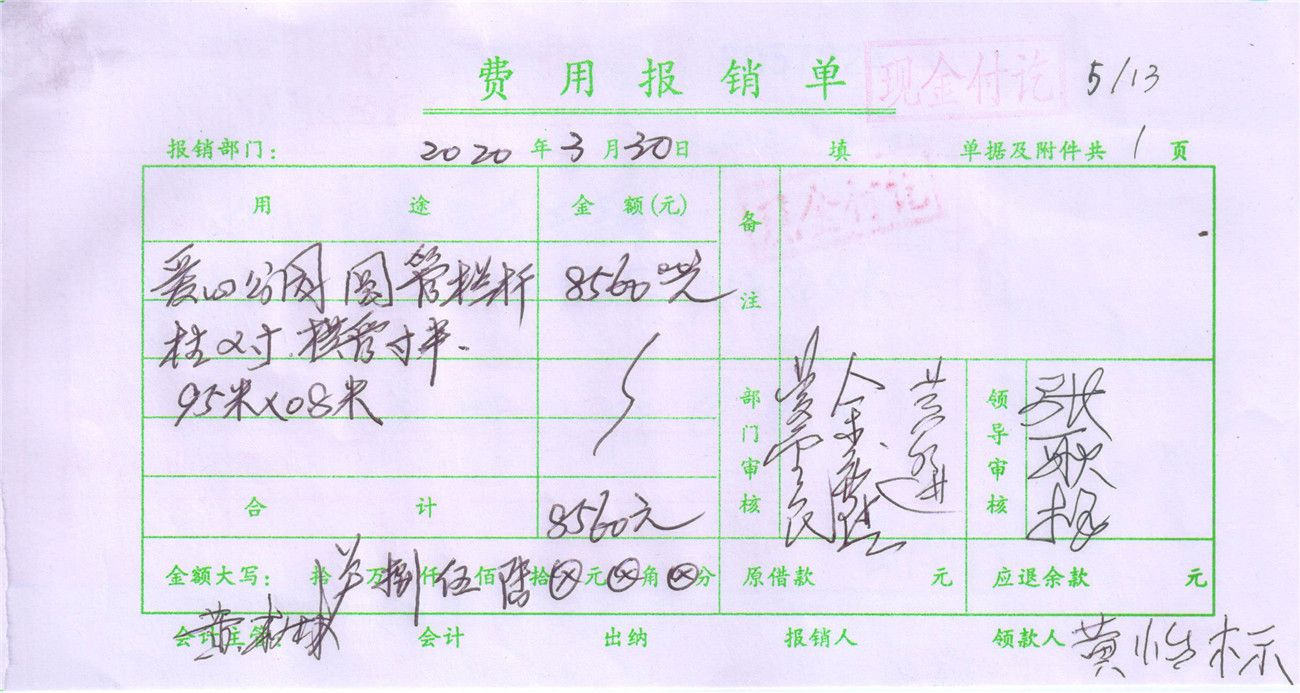 费用报销单
现金付讫
5/13
报销部门： 2020年3月30日 填 单据及附件共1页
用途 金额(元) 备注
爱心公园圆管栏杆 8560.00元
柱2寸.横管寸半.
95米×08米
部门审核 领导审核
合计 8560元
金额大写： 拾 万捌仟伍佰陆拾⊗元⊗角⊗分 原借款 元 应退余款 元
会计主管 会计 出纳 报销人 领款人 黄怡标